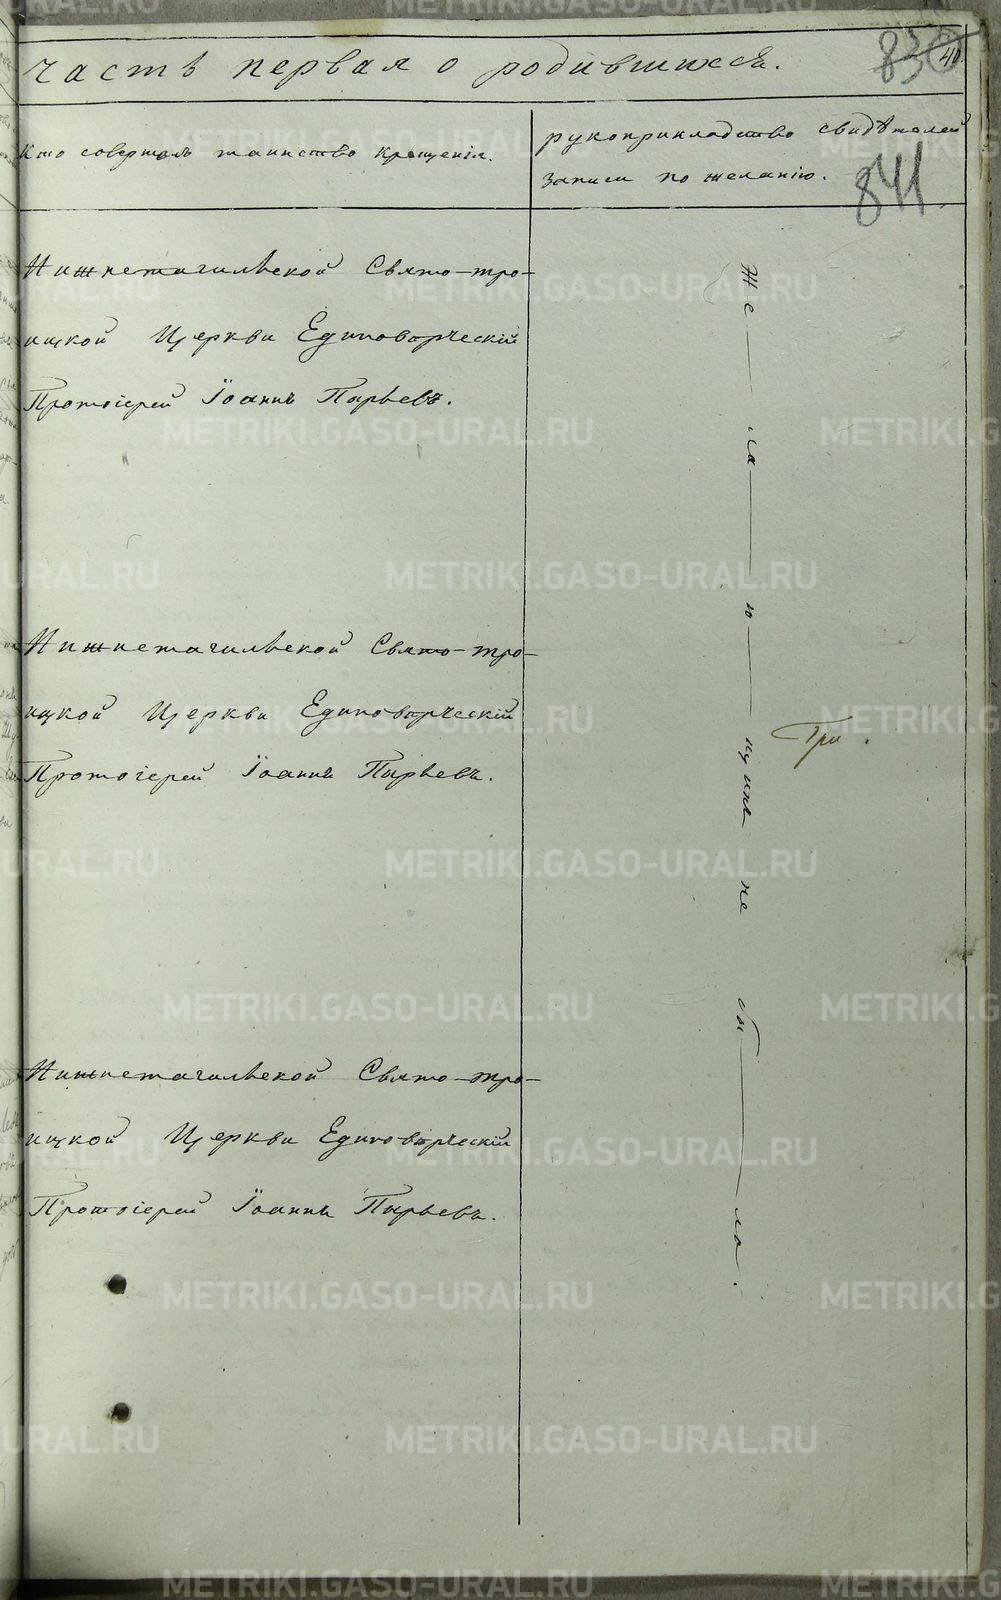 часть первая о родившихся.
40.
841
Кто совершалъ таинство крещенія.
рукоприкладство свидѣтелей
записи по желанію.
Нижнетагильской Свято-тро-
ицкой Церкви Единовѣрческій
Протоіерей Іоаннъ Пырьевъ.
Нижнетагильской Свято-тро-
ицкой Церкви Единовѣрческій
Протоіерей Іоаннъ Пырьевъ.
Нижнетагильской Свято-тро-
ицкой Церкви Единовѣрческій
Протоіерей Іоаннъ Пырьевъ.
Желающихъ не было.
Три.
METRIKI.GASO-URAL.RU